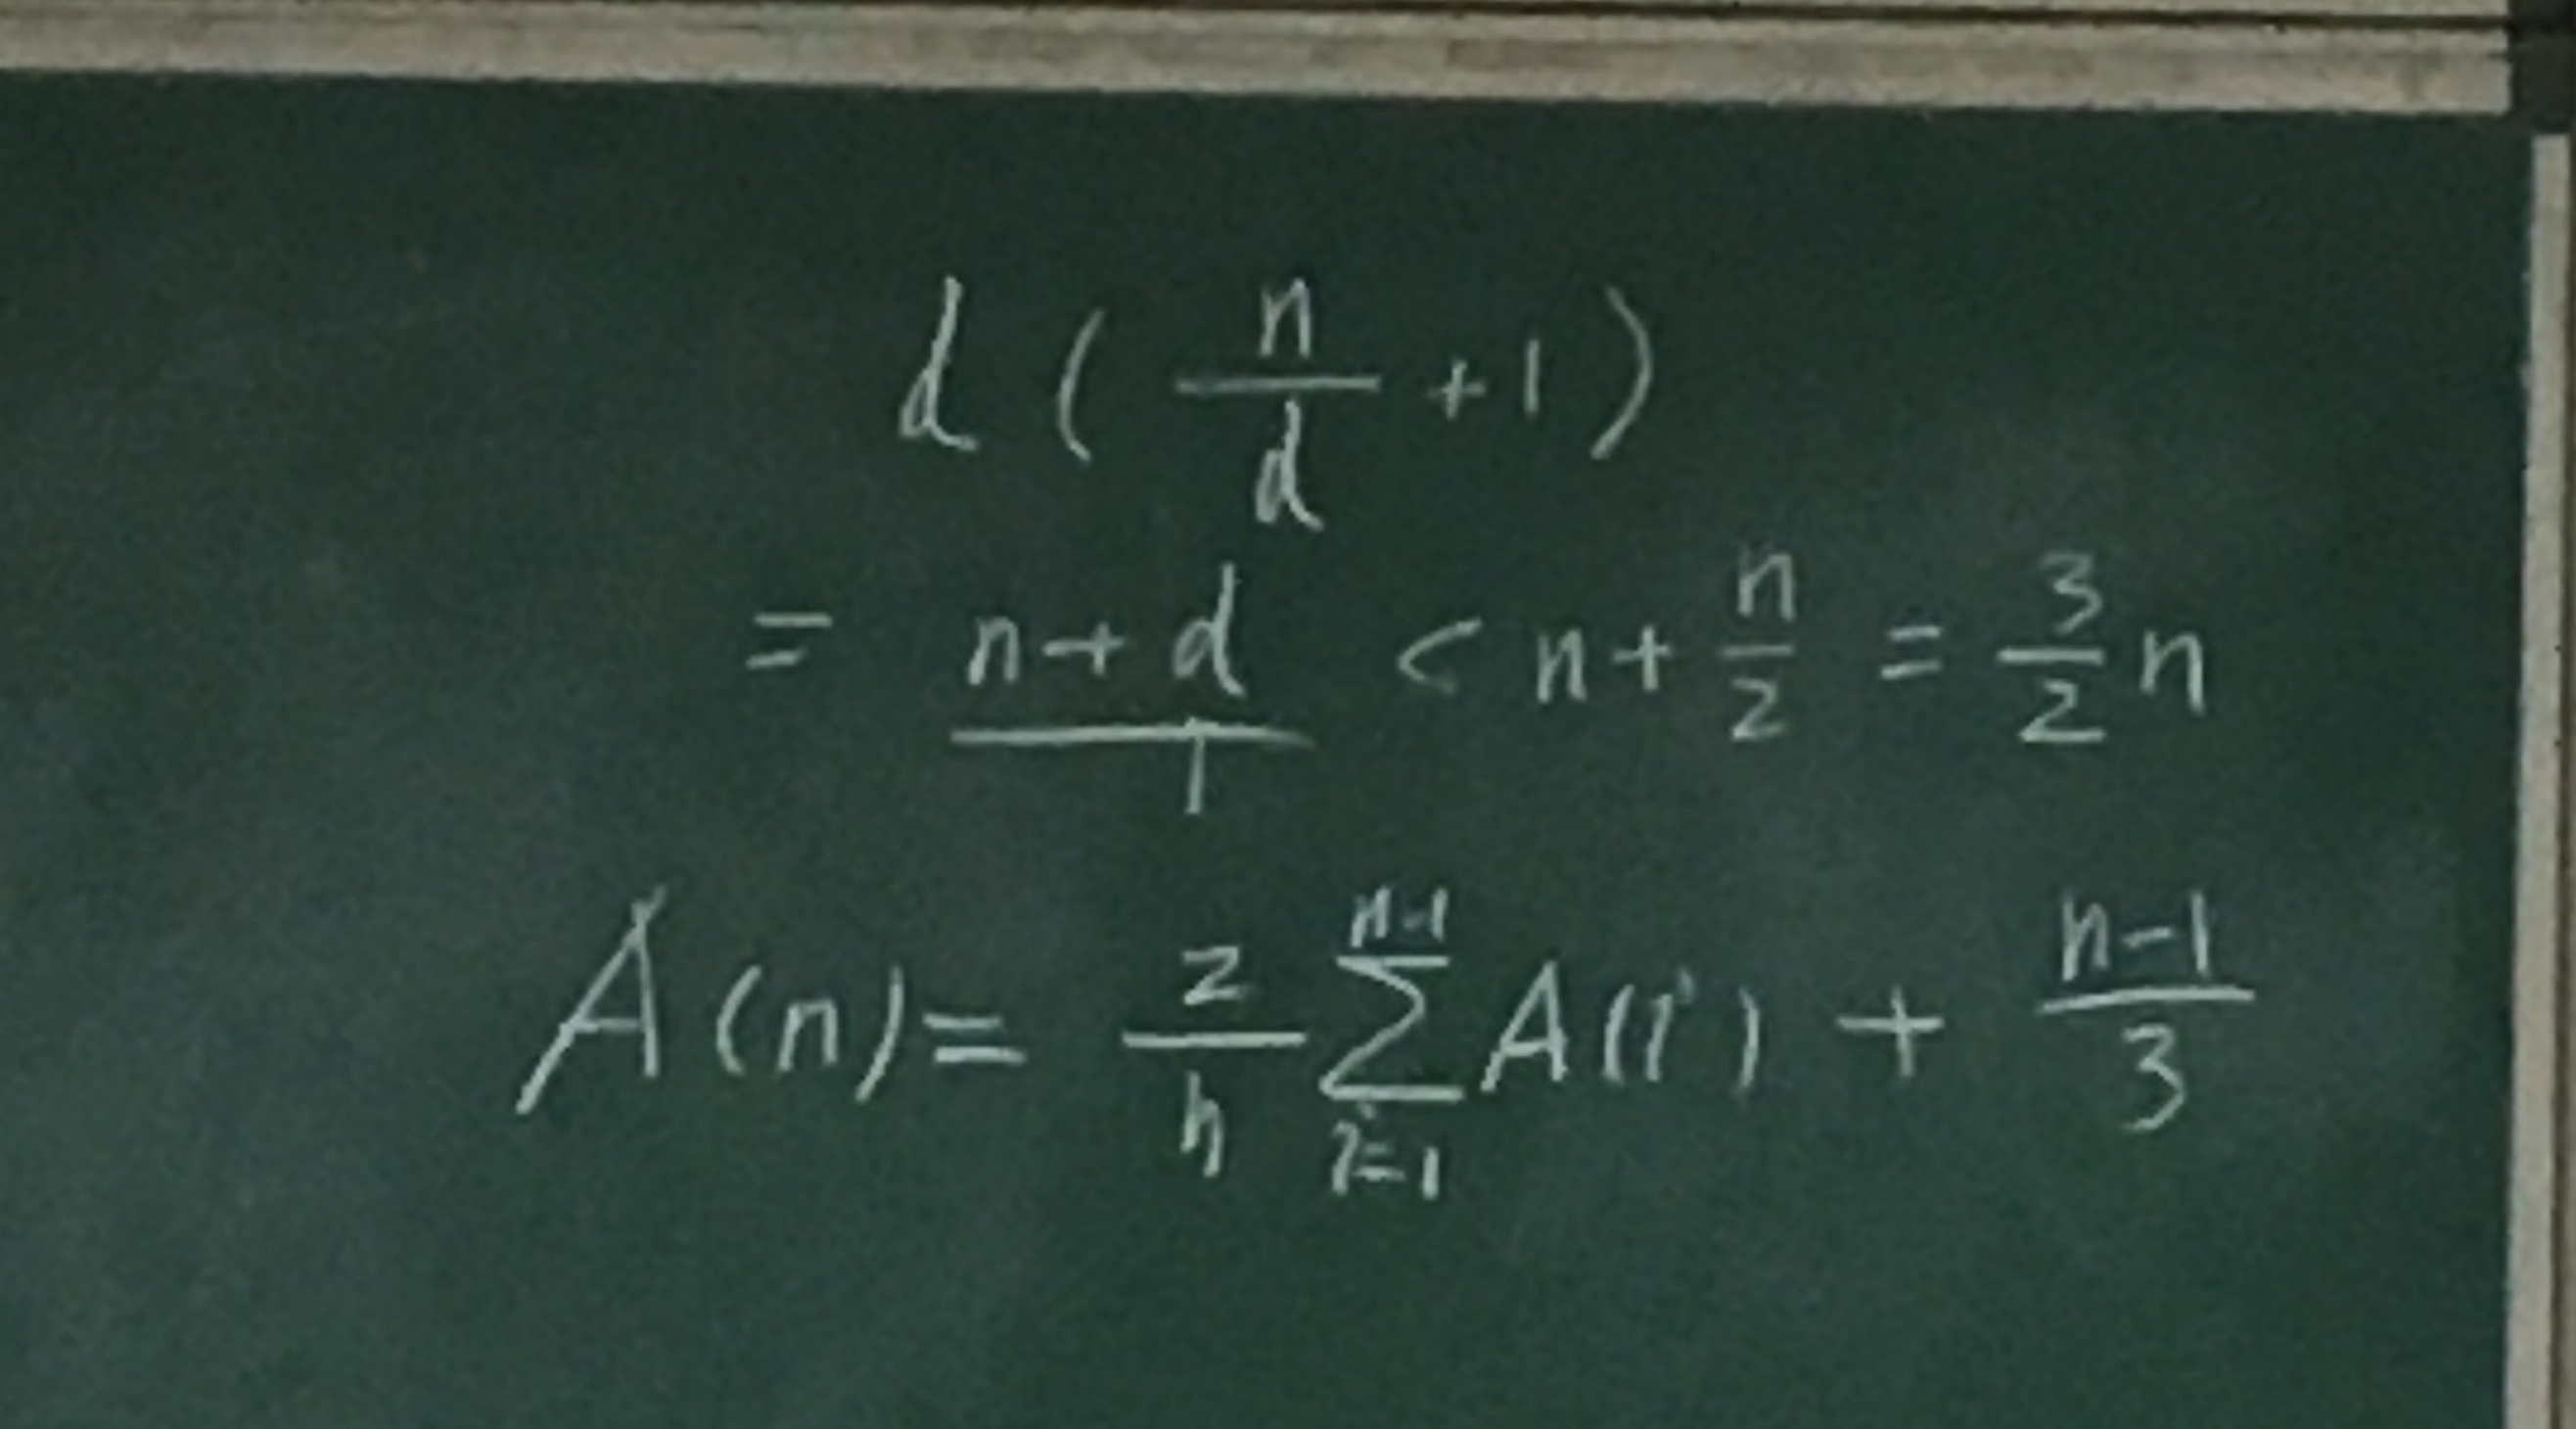 d ( n/d + 1 )
= n + d < n + n/2 = 3/2 n
A(n) = 2/n ∑_{i=1}^{n-1} A(i) + n-1/3